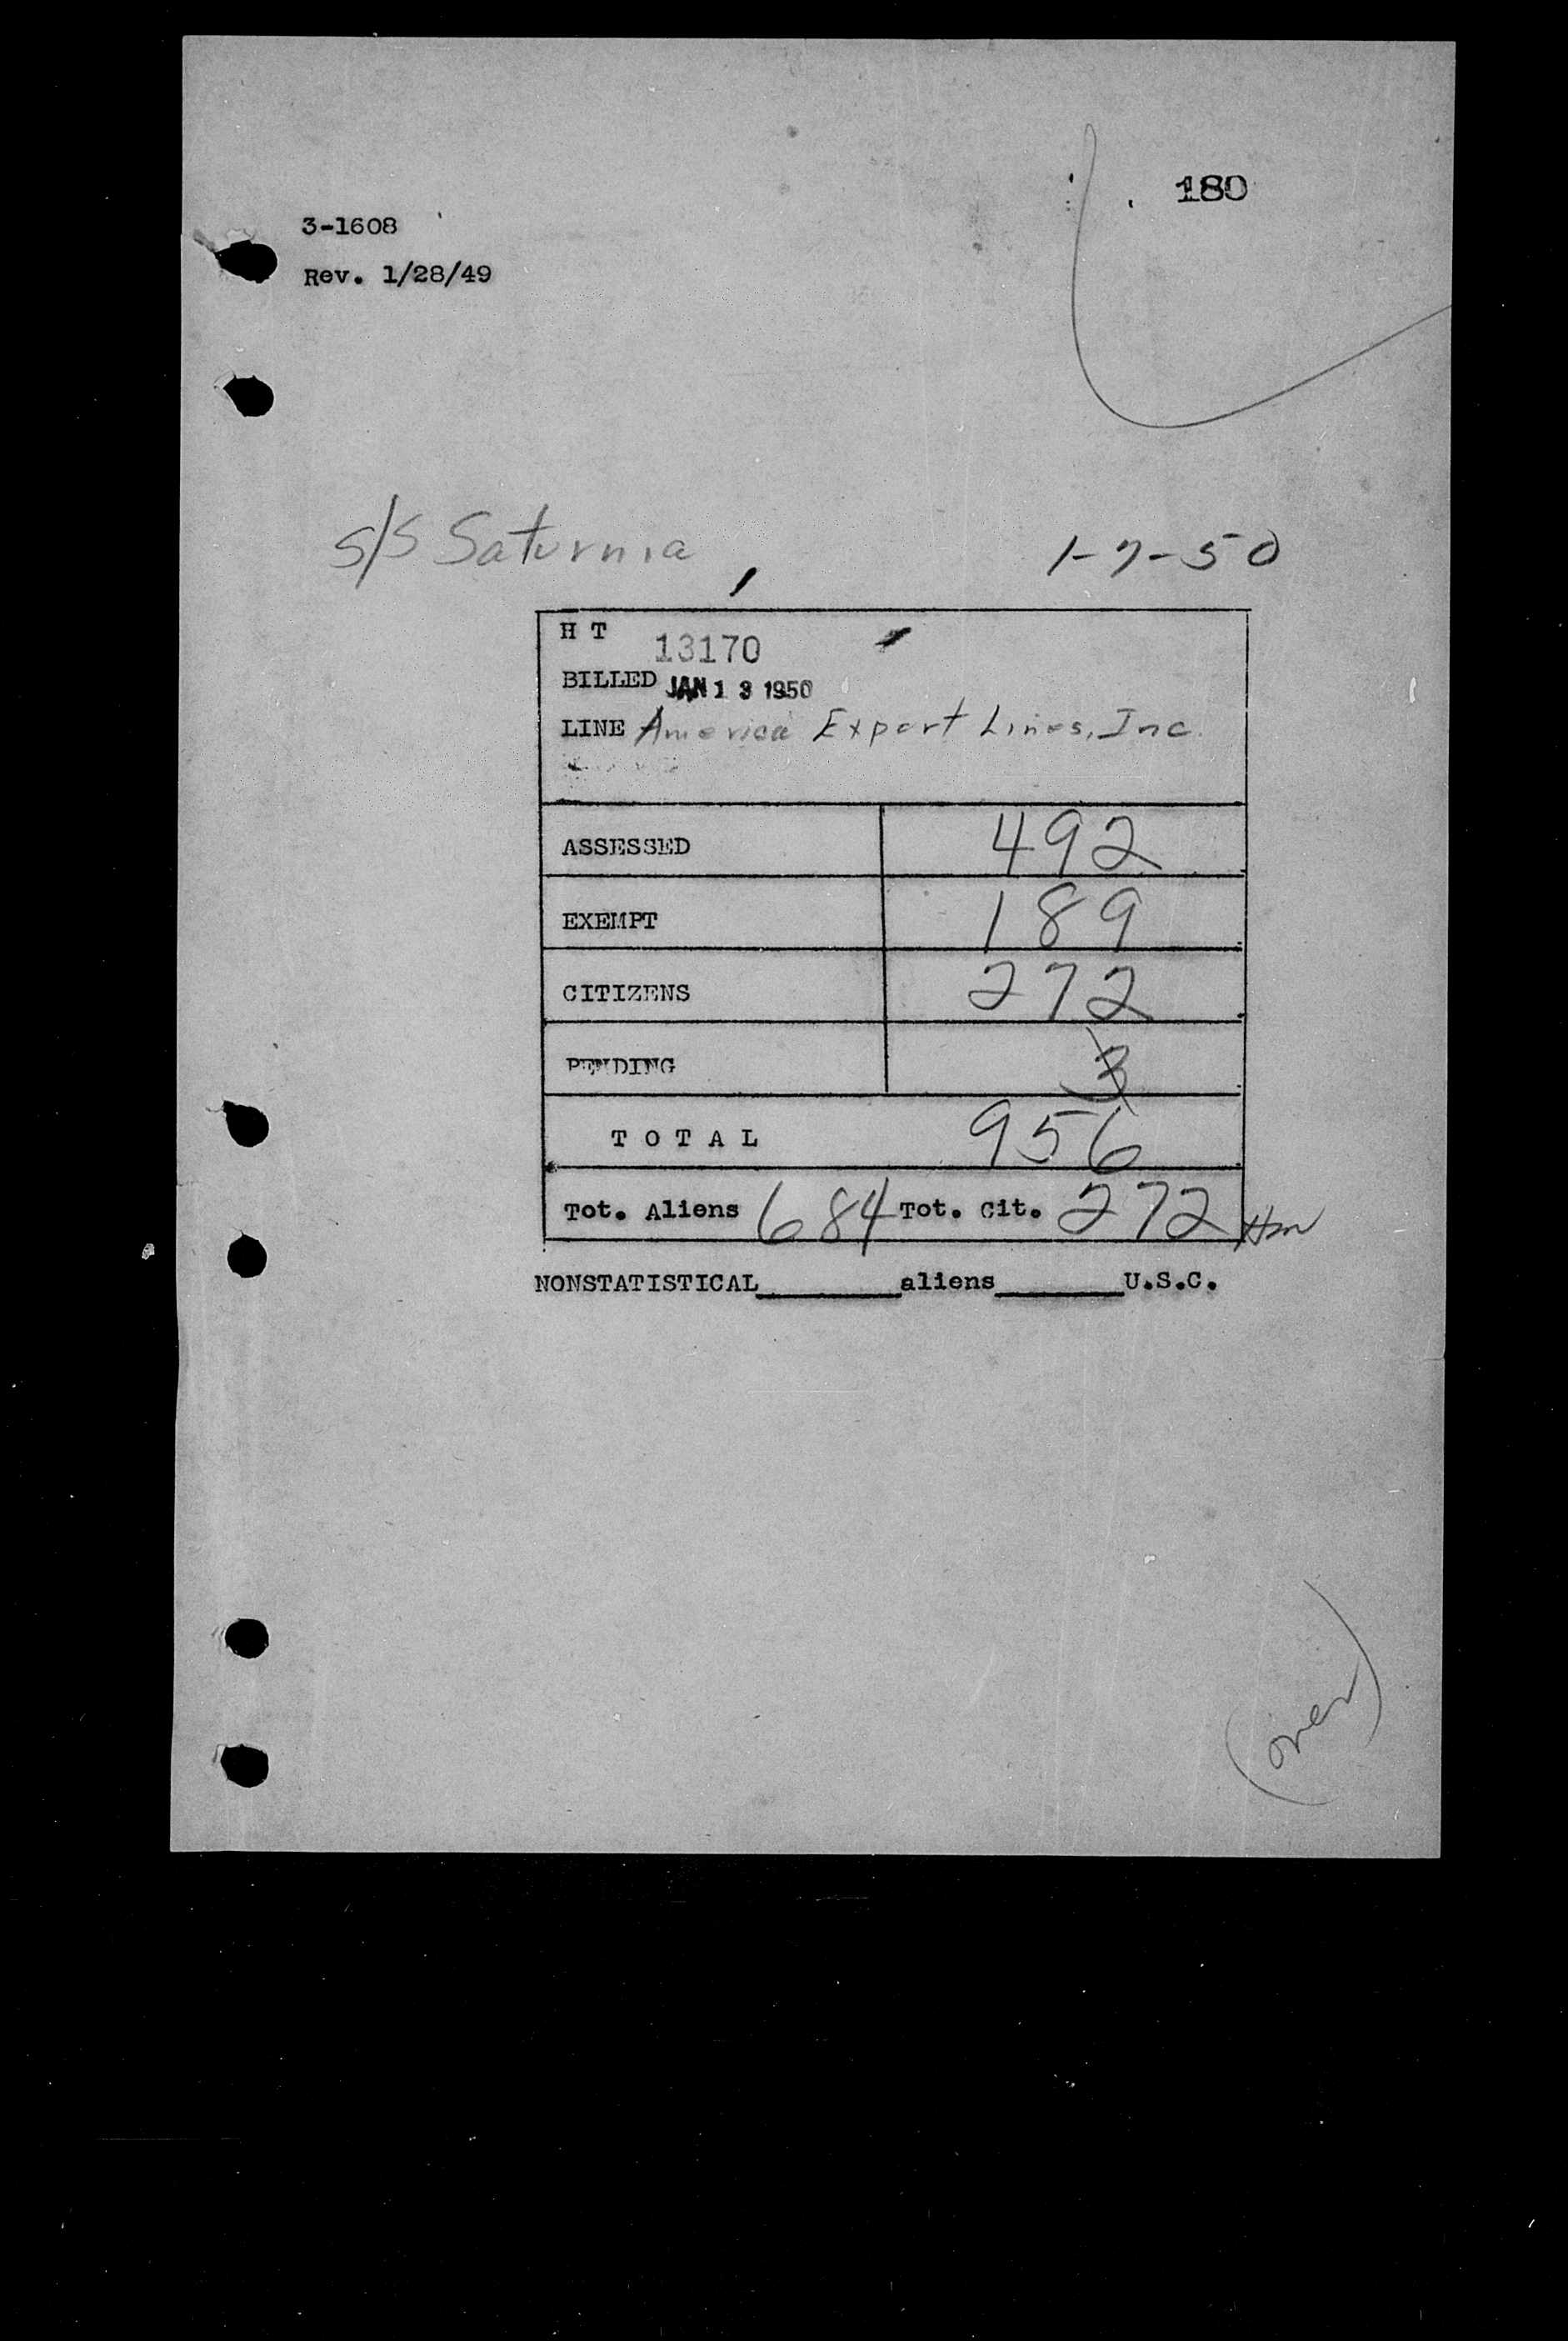 180
3-1608
Rev. 1/28/49
S/S Saturnia 1-7-50
H T 13170
BILLED JAN 13 1950
LINE America Export Lines, Inc.
ASSESSED 492
EXEMPT 189
CITIZENS 272
PENDING 3
T O T A L 956
Tot. Aliens 684 Tot. Cit. 272
NONSTATISTICAL________aliens________U.S.C.
(over)